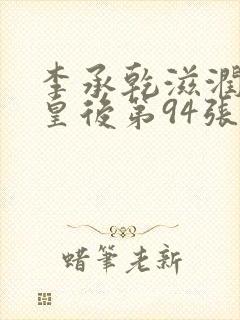 李承乾滋潤
皇後第94張
蜡筆老新